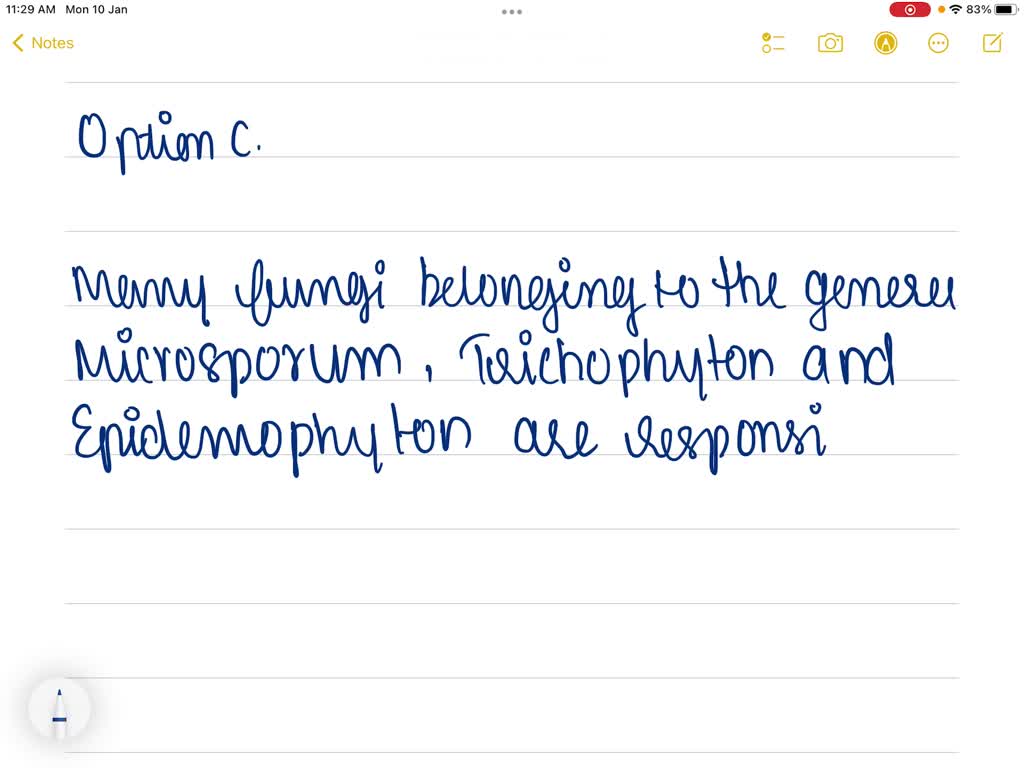 11:29 AM Mon 10 Jan
83%
Notes
Option C.
Many fungi belonging to the genera
Microsporum, Trichophyton and
Epidemophyton are responsi